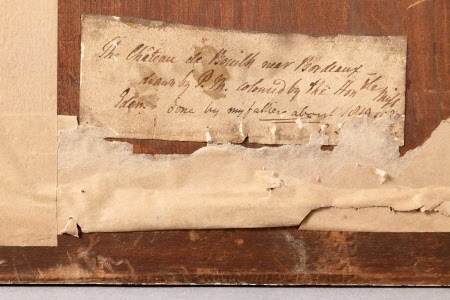 The Château de Bouilh near Bordeaux
drawn by P. M. coloured by the Hon ble Miss
Eden. Done by my father about 1819 or